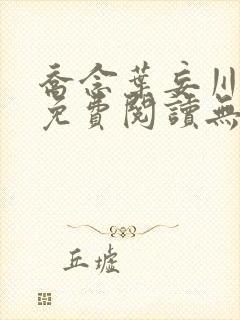 喬念葉妄川
免費閱讀無
丘墟